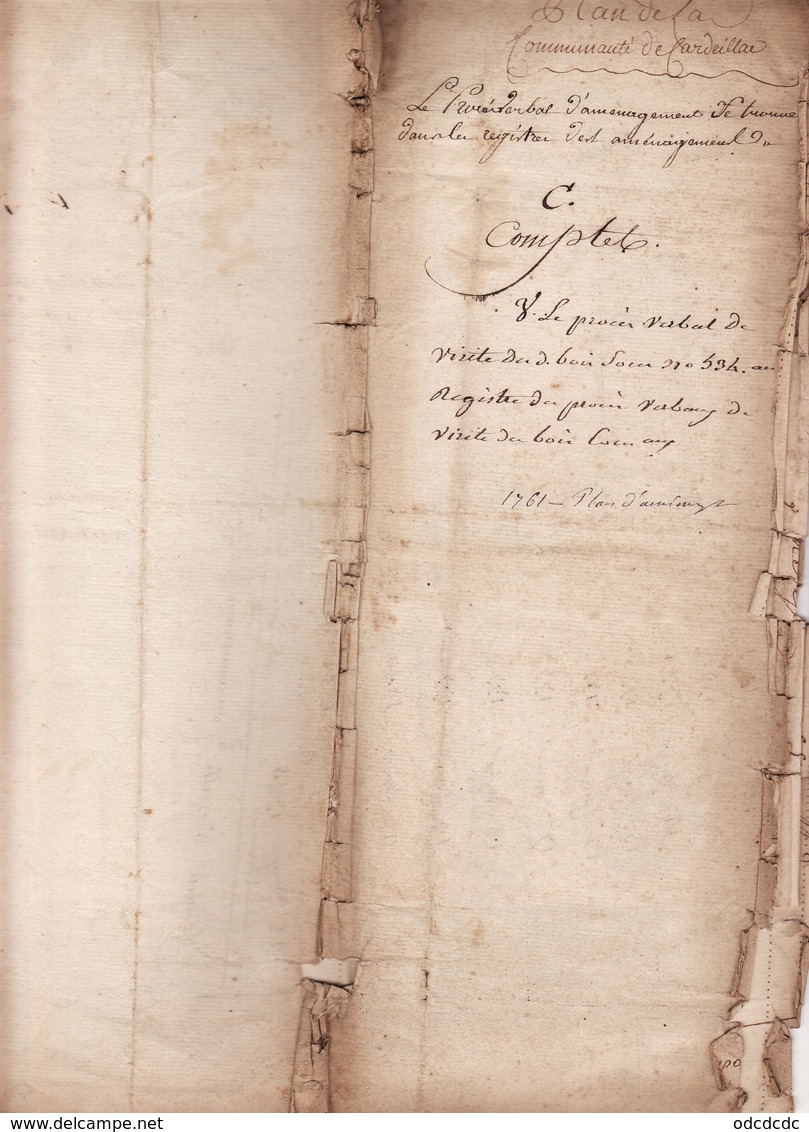 Plan de la
Communauté de Cardeillac
Le Procés Verbal d'amenagement Se trouve
dans les registres des amenagements Du
C.
Complet.
V. Le procès verbal de
visite des d. bois sous no 534. au
Registre des procès verbaux de
visite des bois
1761 - Plan d'aménagt
delcampe.net
odcdcdc